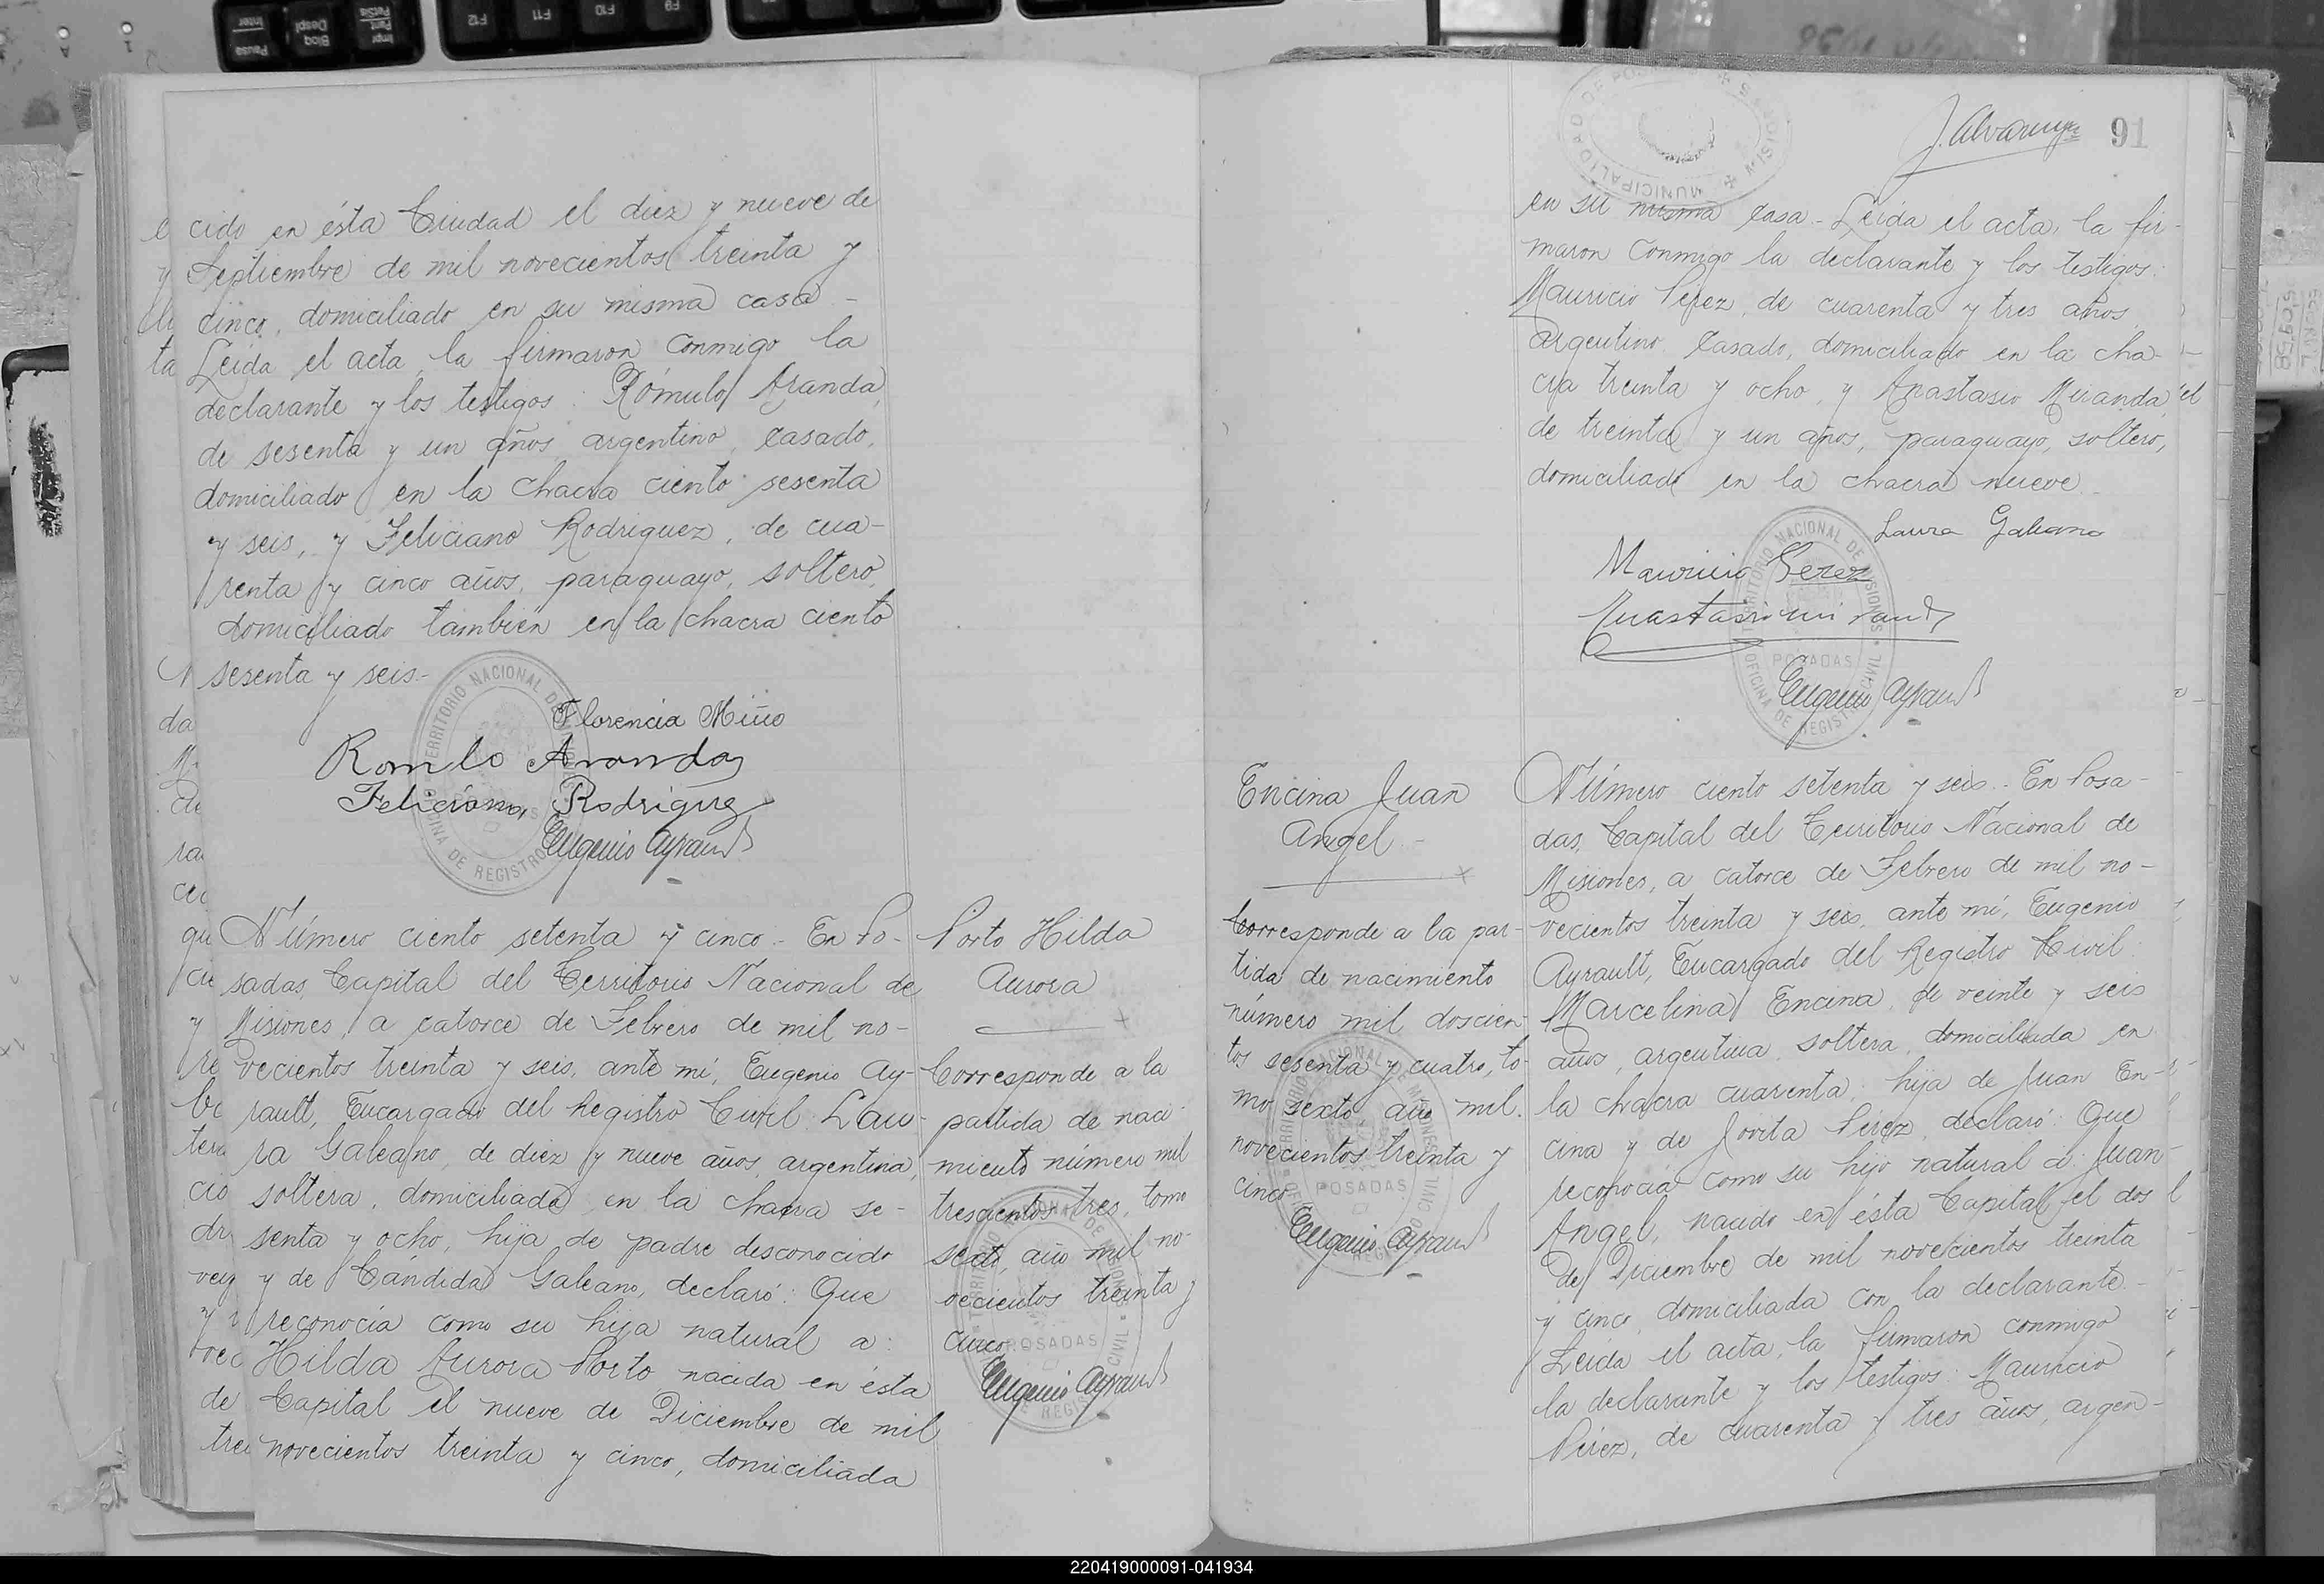 cido en ésta Ciudad el diez y nueve de
Septiembre de mil novecientos treinta y
cinco, domiciliado en su misma casa -
Leida el acta, la firmaron conmigo la
declarante y los testigos: Rómulo Aranda,
de sesenta y un años, argentino, casado,
domiciliado en la chacra ciento sesenta
y seis, y Feliciano Rodriguez, de cua-
renta y cinco años, paraguayo, soltero,
domiciliado también en la chacra ciento
sesenta y seis.-
Florencia Miño
Romlo Aranda
Feliciano Rodriguez
Eugenio Ayrault
Número ciento setenta y cinco.- En Po-
sadas, Capital del Territorio Nacional de
Misiones, a catorce de Febrero de mil no-
vecientos treinta y seis, ante mí, Eugenio Ay-
rault, Encargado del Registro Civil: Lau-
ra Galeano, de diez y nueve años, argentina,
soltera, domiciliada en la chacra se-
senta y ocho, hija de padre desconocido
y de Cándida Galeano, declaró: Que
reconocía como su hija natural a:
Hilda Aurora Porto nacida en ésta
Capital el nueve de Diciembre de mil
novecientos treinta y cinco, domiciliada
Porto Hilda
Aurora
Corresponde a la
partida de naci-
miento número mil
trescientos tres, tomo
sexto, año mil no-
vecientos treinta y
cinco
Eugenio Ayrault
91
en su misma casa.- Leida el acta, la fir-
maron conmigo la declarante y los testigos:
Mauricio Pérez, de cuarenta y tres años,
argentino, casado, domiciliado en la cha-
cra treinta y ocho, y Anastasio Miranda,
de treinta y un años, paraguayo, soltero,
domiciliado en la chacra nueve.
Laura Galeano
Mauricio Perez
Anastasio mirand
Eugenio Ayrault
Encina Juan
Angel.-
Corresponde a la par-
tida de nacimiento
número mil doscien-
tos sesenta y cuatro, to-
mo sexto, año mil
novecientos treinta y
cinco
Eugenio Ayrault
Número ciento setenta y seis.- En Posa-
das, Capital del Territorio Nacional de
Misiones, a catorce de Febrero de mil no-
vecientos treinta y seis, ante mí, Eugenio
Ayrault, Encargado del Registro Civil:
Marcelina Encina, de veinte y seis
años, argentina, soltera, domiciliada en
la chacra cuarenta, hija de Juan En-
cina y de Jovita Pérez, declaró: Que
reconocía como su hijo natural a: Juan
Angel, nacido en ésta Capital el dos
de Diciembre de mil novecientos treinta
y cinco, domiciliada con la declarante.-
Leida el acta, la firmaron conmigo
la declarante y los testigos: Mauricio
Pérez, de cuarenta y tres años, argen-
220419000091-041934